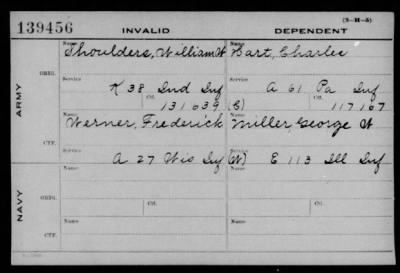 139456 INVALID DEPENDENT (3-H-5)
Name Name
Shoulders, William W Bart, Charles
ARMY
ORIG.
Service Service
K 38 Ind Inf A 61 Pa Inf
Ctf. 131039 (C) Ctf. 117167
Name Name
Werner, Frederick Miller, George W
CTF.
Service Service
A 27 Wis Inf (W) E 113 Ill Inf
NAVY
Name Name
ORIG.
Ctf. Ctf.
Name Name
CTF.